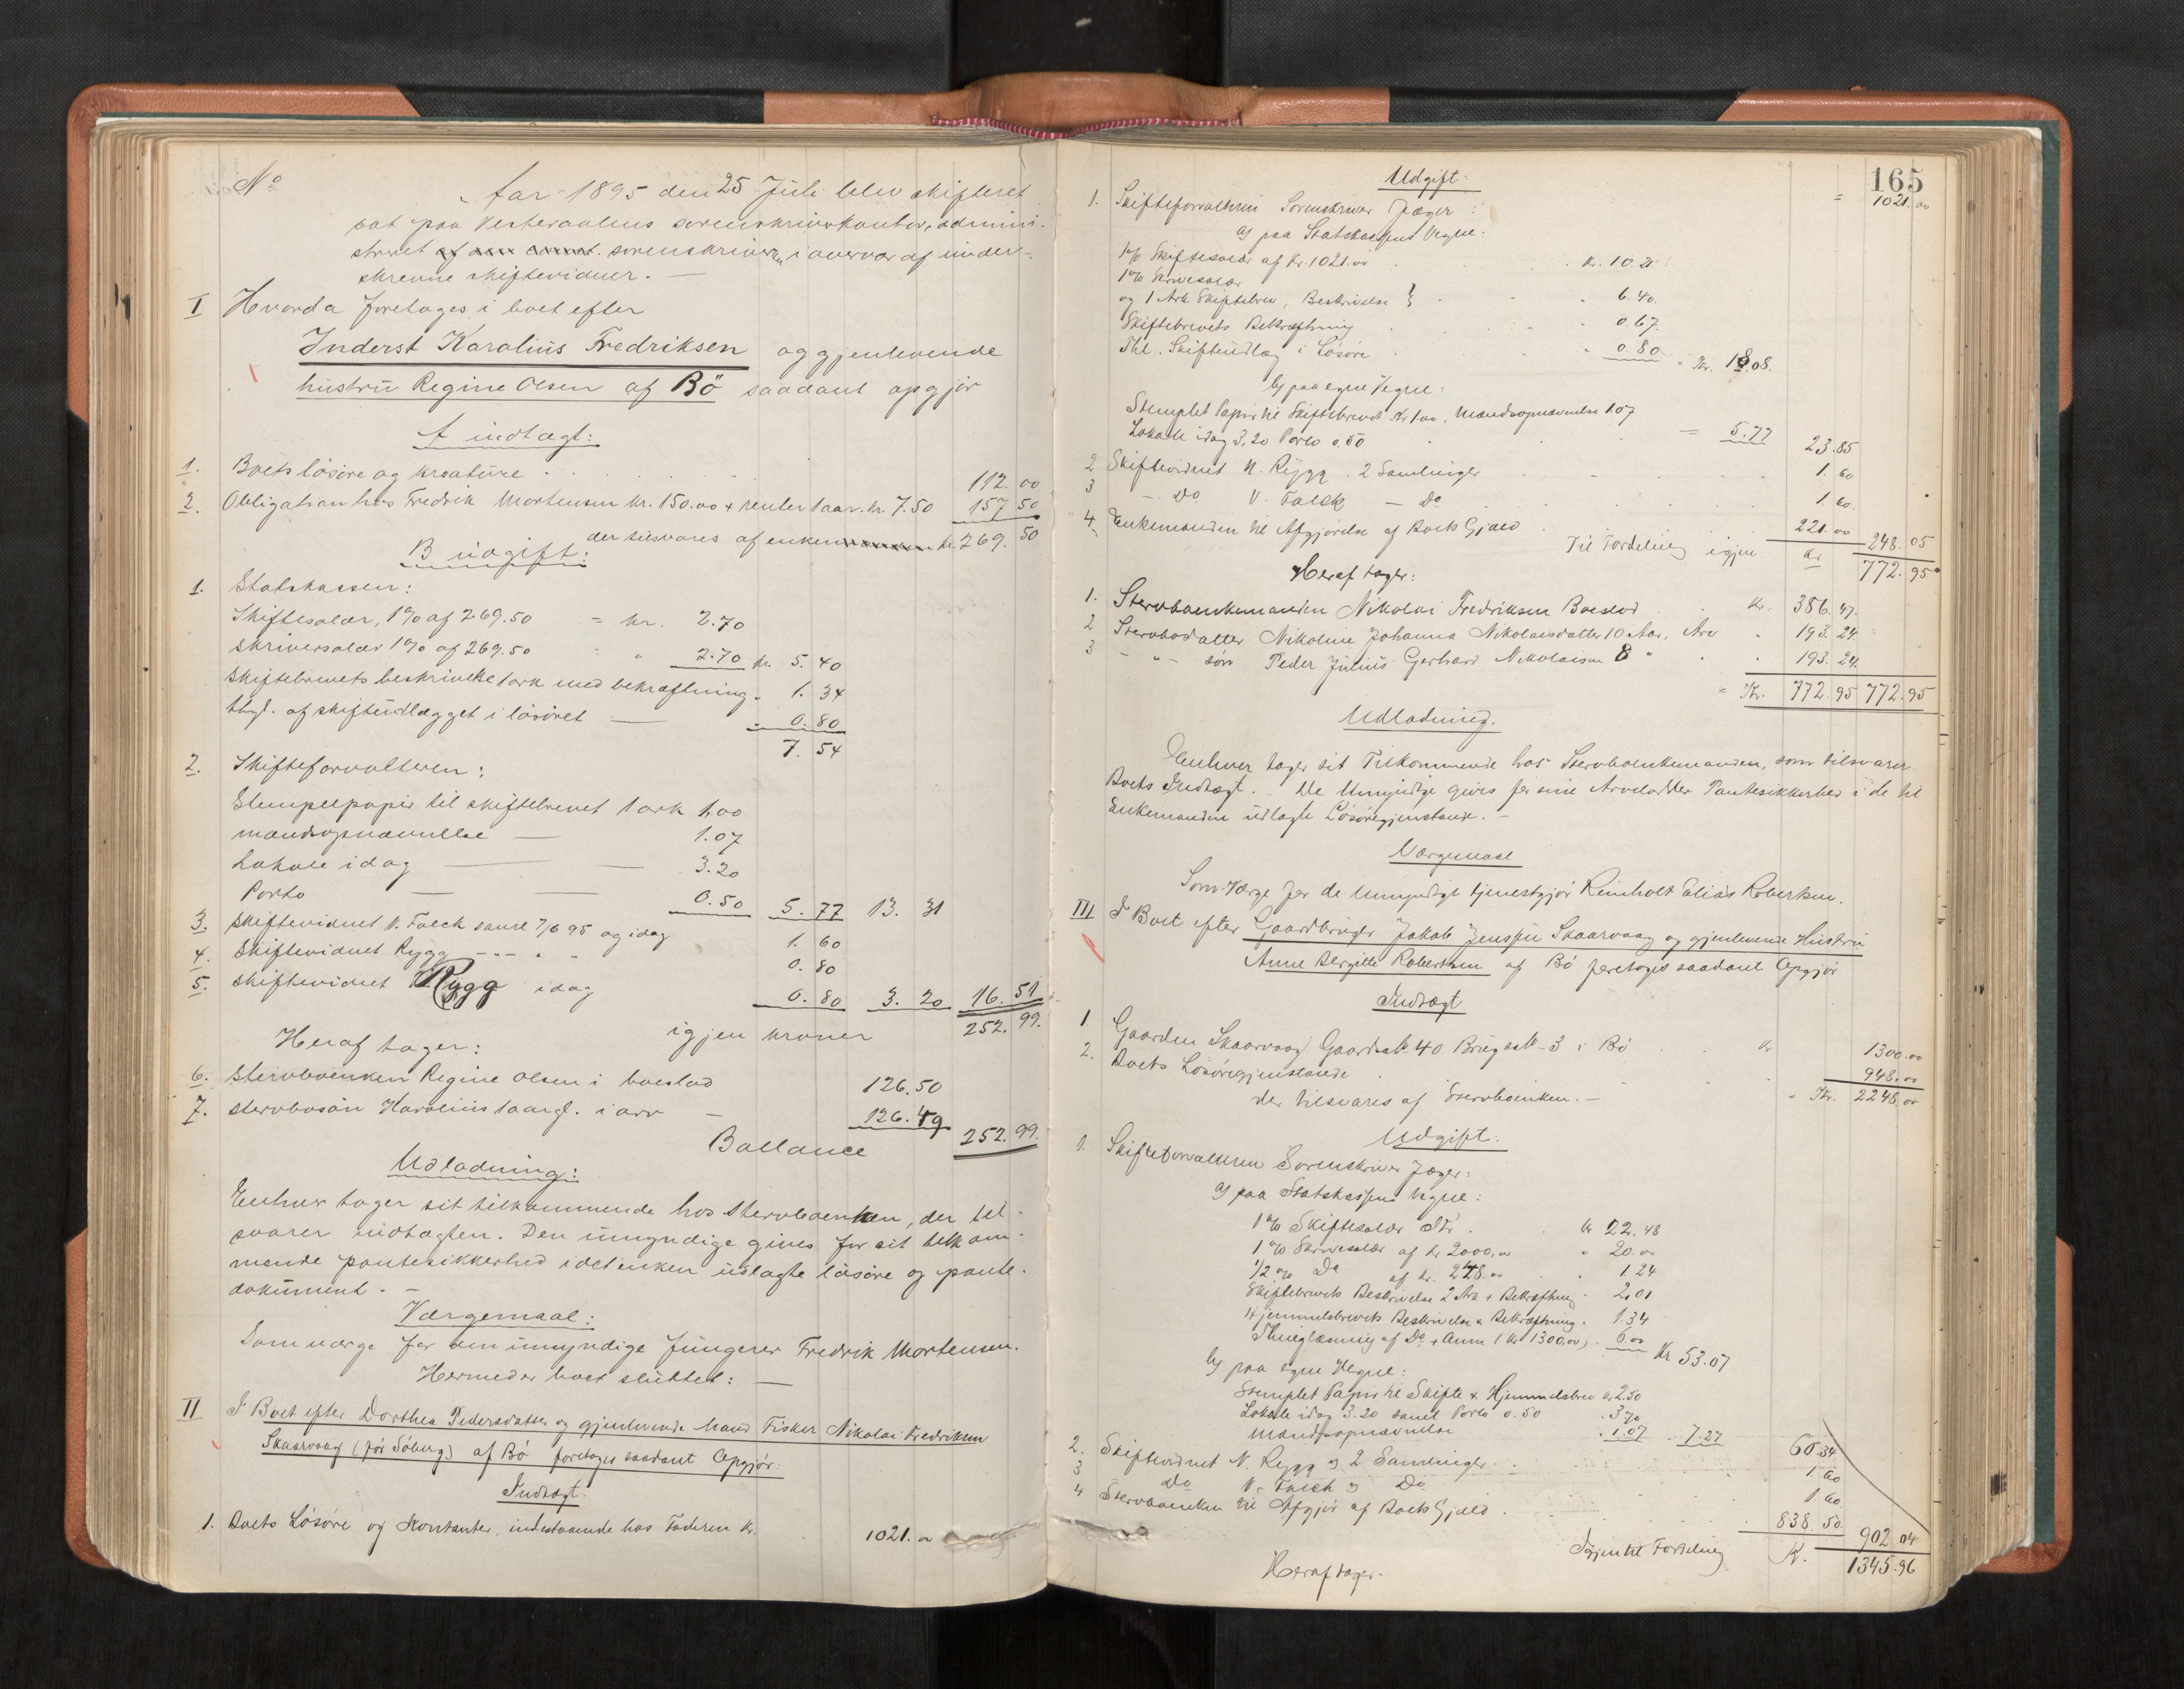 No
Aar 1895 den 25 Juli blev skifteret
sat paa Vesteraalens sorenskriverkontor, admini-
streret af den const. sorenskriveren i overvær af under-
skrevne skiftevidner. —
I Hvorda foretoges i boet efter
Inderst Karolius Fredriksen og gjenlevende
hustru Regine Olsen af Bö saadant opgjør
A indtægt:
1. Boets løsøre og kreature 112.00
2. Obligation hos Fredrik Mortensen kr. 150.00 + renter 1 aar. kr. 7.50 157 50
der tilsvares af enken kr. 269. 50
B udgift:
1. Statskassen:
Skiftesalær, 1% af 269.50 = kr. 2.70
skriversalær 1% af 269.50 = " 2.70 kr. 5. 40
Skiftebrevets beskrivelse 1 ark med bekræftning " 1. 34
thgl. af skifteudlægget i løsøret — " 0. 80
7. 54
2. Skifteforvalteren:
Stempelpapir til skiftebrevet 1 ark 1,00
mandsopnævnelse — 1.07
Lokale idag — — 3.20
Porto — — 0.50 5. 77 13. 31
3. Skiftevidnet V. Falck saml 7/6 95 og idag 1. 60
4. Skiftevidnet Rygg - - - " " 0. 80
5. skiftevidnet N. Rygg idag 0. 80 3. 20 16. 51
igjen kroner 252. 99.
Heraf tager:
6. Stervboenken Regine Olsen i boeslod 126.50
7. stervbosön Karolius 1 aargl. i arv — 126.49
Ballance 252. 99.
Udlodning:
Enhver tager sit tilkommende hos stervboenken, der til-
svarer indtægten. Den umyndige gives for sit tilkom-
mende pantesikkerhed i det enken udlagte løsøre og pante-
dokument. —
Værgemaal:
Som værge for den umyndige fungerer Fredrik Mortensen.
Hermeder boet sluttet: —
II I Boet efter Dorthea Pedersdatter og gjenlevende Mand Fisker Nikolai Fredriksen
Skaarvaag (før Søberg) af Bö foretoges saadant Opgjör:
Indtægt.
1. Boets Løsøre og Kontanter, indestaaende hos Faderen kr. 1021.00
165
Udgift.
= 1021.00
1. Skifteforvalteren Sorenskriver Jæger:
a) paa Statskassens Vegne:
1% Skiftesalær af Kr. 1021.00 Kr. 10.21
1% Skriversalær
og 1 Ark Skiftebrev, Beskrivelse } " 6.40.
Skiftebrevets Bekræftning " 0.67.
Thl. Skifteudlæg i Løsøre " 0.80 = Kr. 18.08.
b) paa egne Vegne:
Stemplet Papir til Skiftebrevet Kr 1.00, Mandsopnævnelse 1.07
Lokale idag 3.20 Porto 0.50 = 5.77 23.85
2 Skiftevidnet N. Rygg. 2 Samlinger 1. 60
3 - Do V. Falck — Do 1 60.
4 Enkemanden til Afgjørelse af Boets Gjæld 221.00 248. 05
Til Fordeling igjen Kr 772. 95
Heraf tager:
1. Stervboenkemanden Nikolai Fredriksen Boeslod Kr. 386. 47.
2 Stervbodatter Nikoline Johanna Nikolaisdatter 10 Aar, Arv " 193. 24.
3 - " - søn Peder Julius Gerhard Nikolaisen 8 " " 193. 24.
= Kr. 772. 95 772. 95
Udlodning.
Enhver tager sit Tilkommende hos Stervboenkemanden, som tilsvarer
Boets Indtægt. - De Umyndige gives for sine Arvelodder Pantesikkerhed i de til
Enkemanden udlagte Løsøregjenstande. —
Værgemaal
Som Værge for de Umyndige tjenestgjör Reinholt Elias Robertsen.
III I Boet efter Gaardbruger Jakob Jenssen Skaarvaag og gjenlevende Hustru
Anne Bergitte Robertsen af Bö foretoges saadant Opgjör
Indtægt
1 Gaarden Skaarvaag Gaards No 40 Brugs No 3 i Bö Kr 1300.00
2. Boets Løsøregjenstande 948.00
der tilsvares af Stervboenken. — = Kr. 2248.00
Udgift.
1. Skifteforvalteren Sorenskriver Jæger:
a) paa Statskassens Vegne:
1% Skiftesalær Kr 22.48
1% Skriversalær af Kr 2000.00 " 20.00
1/2 % Do af Kr. 248.00 " 1.24
Skiftebrevets Beskrivelse 2 Ark + Bekræftning " 2.01
Hjemmelsbrevets Beskrivelse & Bekræftning " 1.34
Thinglæsning af Do + Anm (Kr 1300.00) " 6.00 Kr 53.07
b) paa egne Vegne:
Stemplet Papir til Skifte & Hjemmelsbrev Kr 2.50
Lokale idag 3.20 samt Porto 0.50 " 3.70
Mandsopnævnelse " 1.07 " 7.27 60.34
2. Skiftevidnet N. Rygg 2 Samlinger 1 60
3 Do V. Falck Do 1 60
4 Stervboenken til Afgjør af Boets Gjæld 838. 50. 902 04
Igjen til Fordeling Kr. 1345.96
Heraf tager.